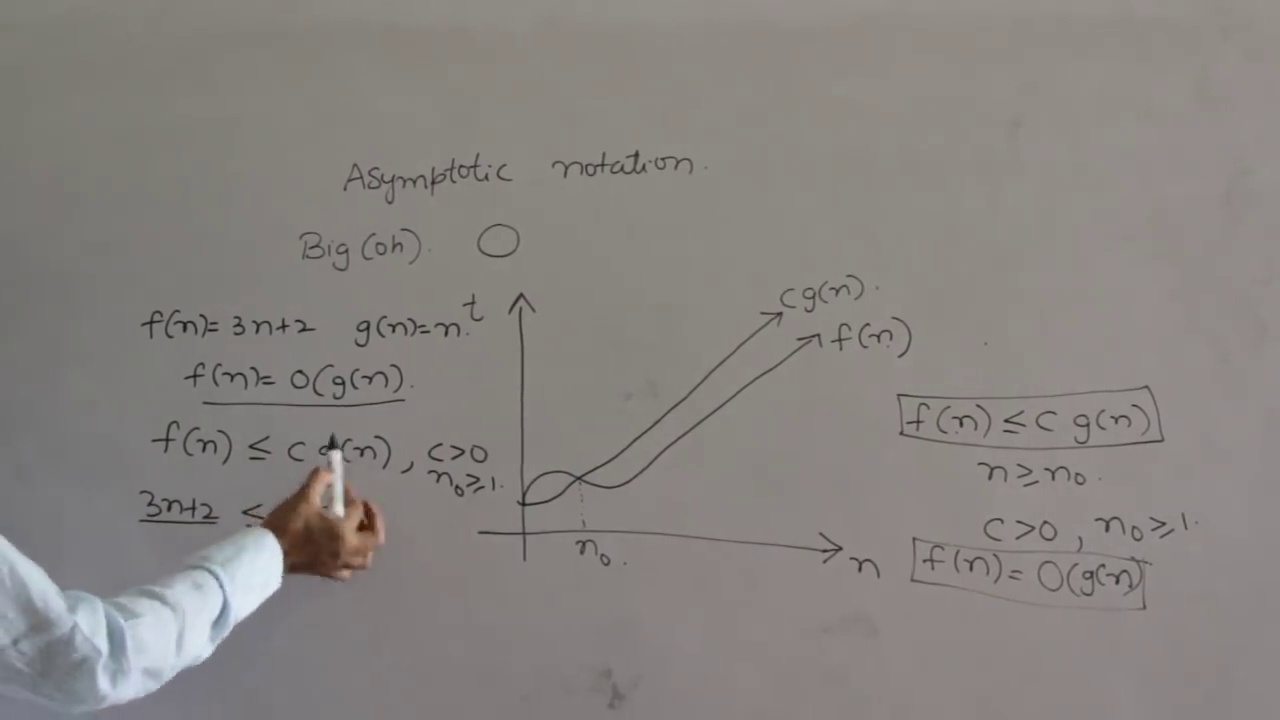 Asymptotic notation.
Big(oh). O
f(n)=3n+2 g(n)=n.
f(n)=O(g(n).
f(n) ≤ c g(n), c>0
n₀≥1.
3n+2 ≤
t
cg(n).
f(n)
n₀.
n
f(n) ≤ c g(n)
n≥n₀.
c>0, n₀≥1.
f(n)= O(g(n)